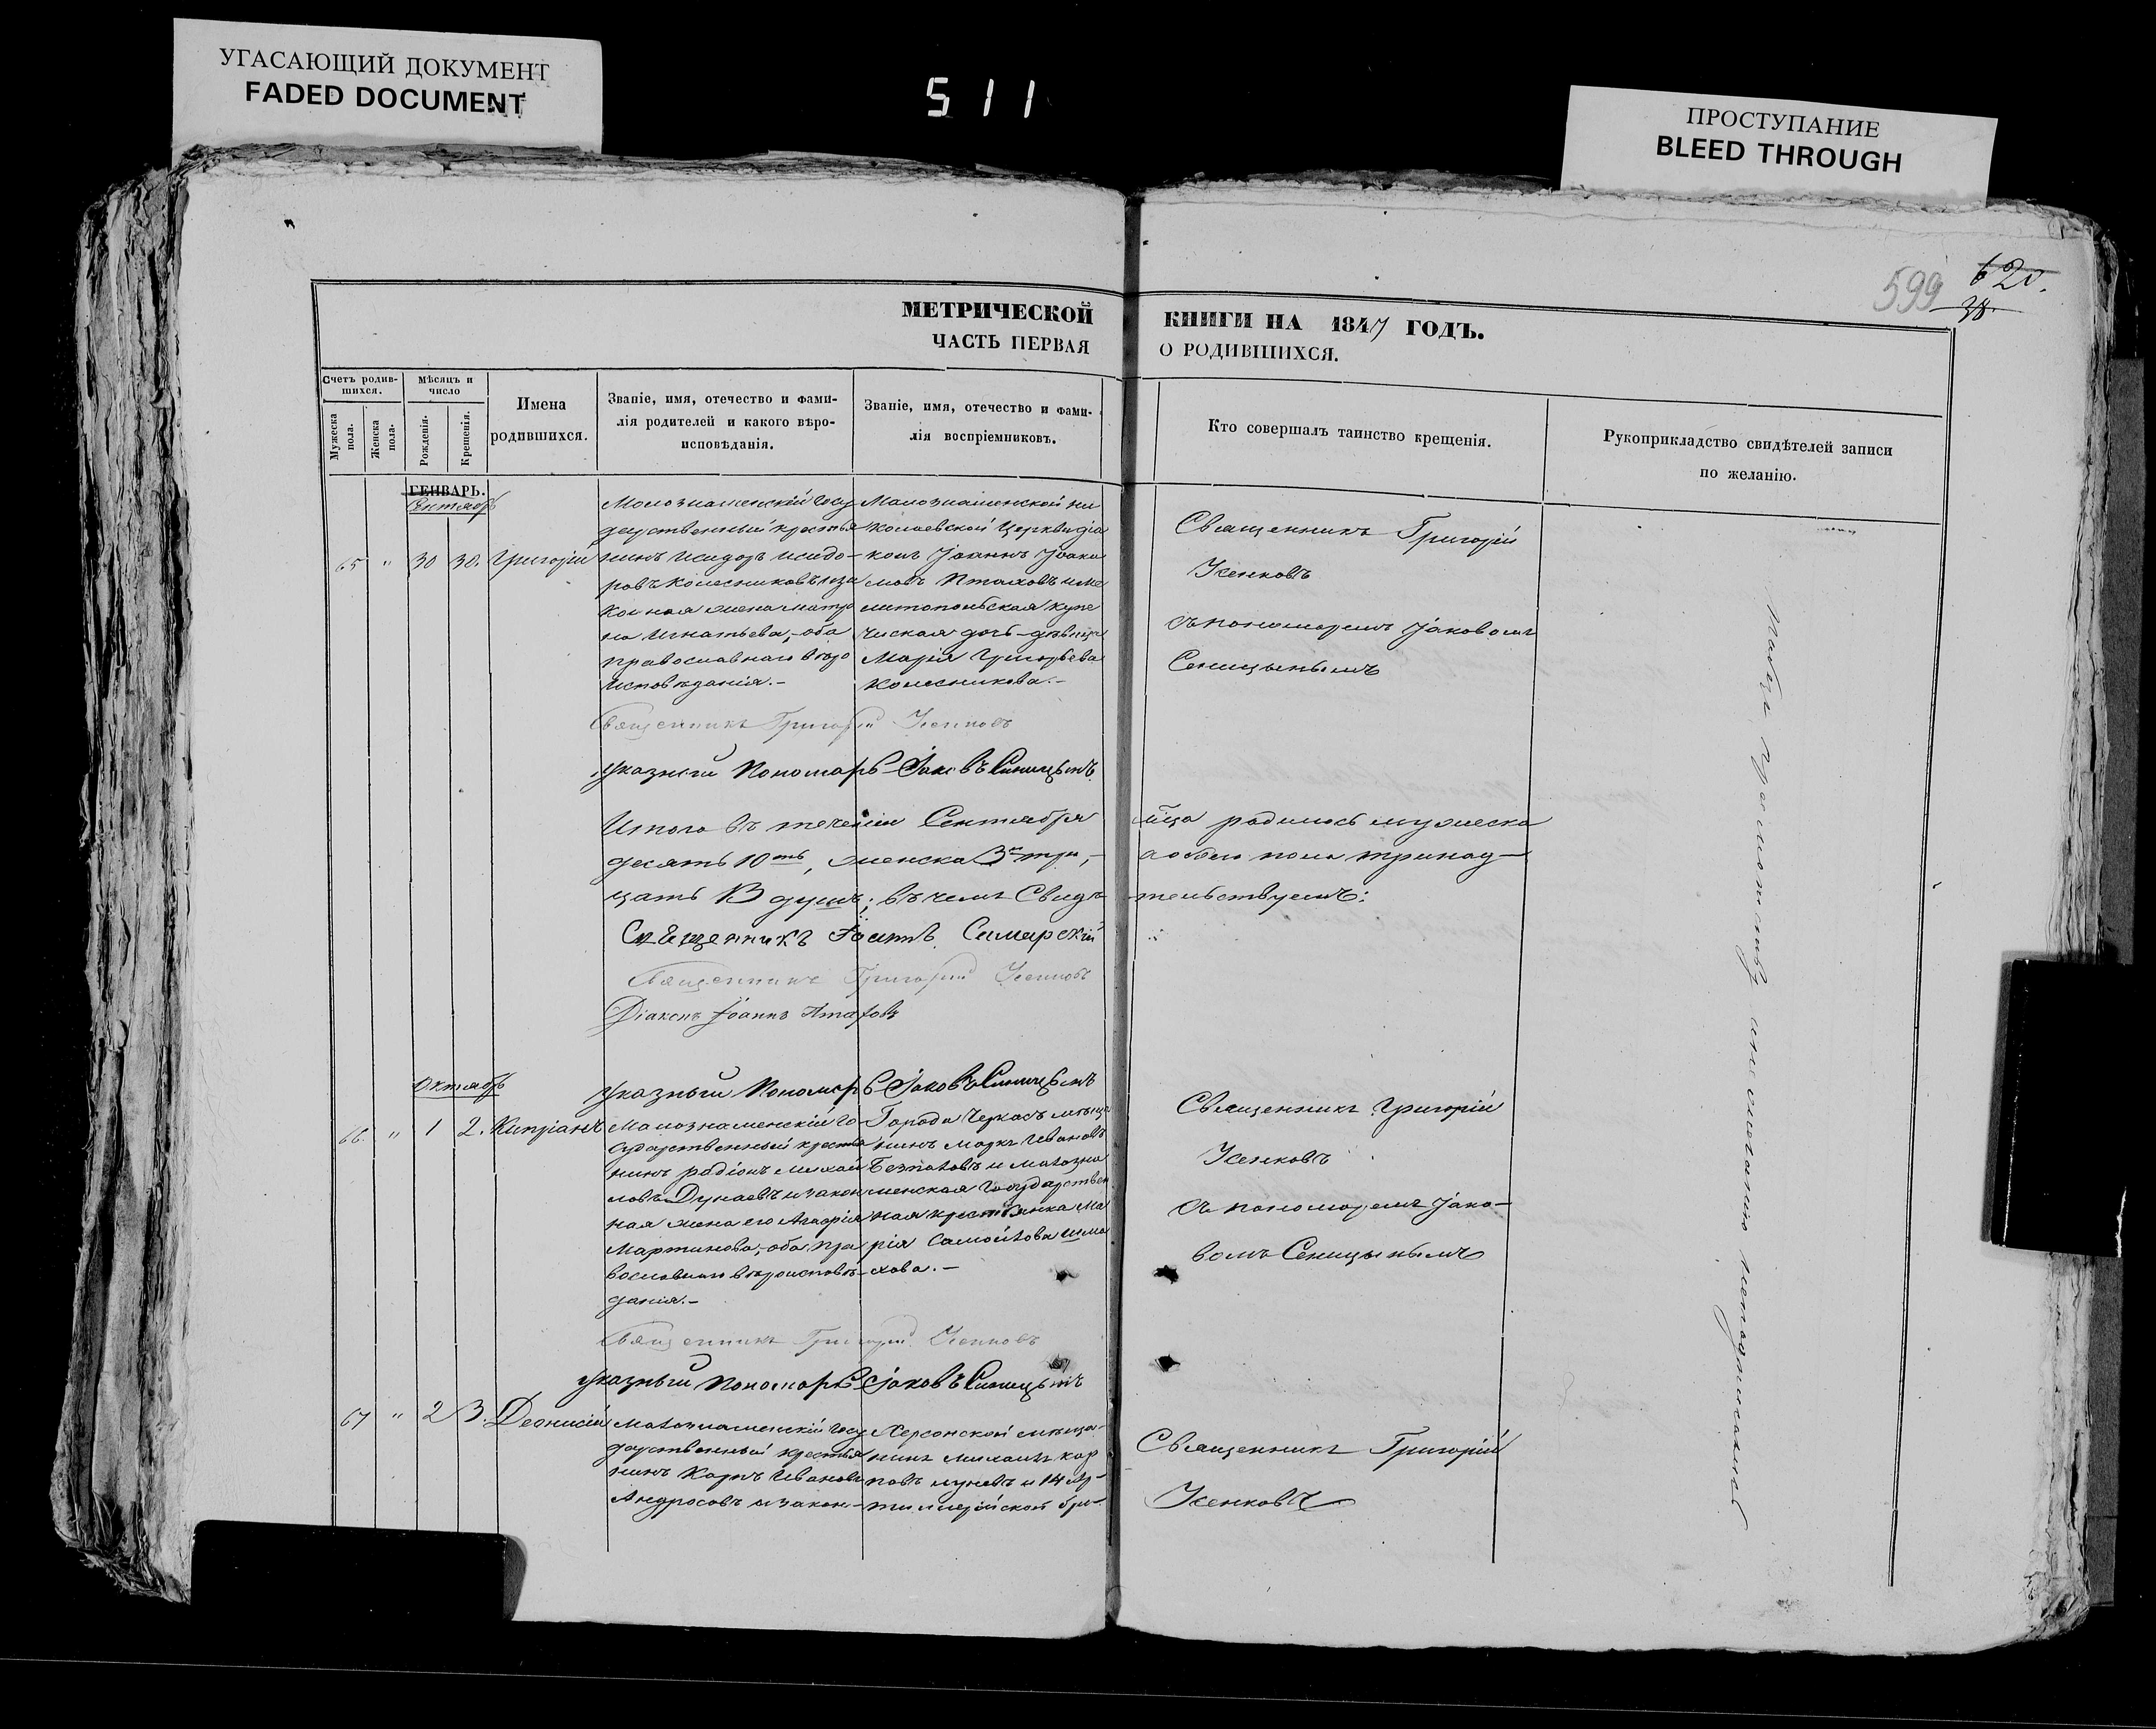 УГАСАЮЩИЙ ДОКУМЕНТ
FADED DOCUMENT
511
ПРОСТУПАНИЕ
BLEED THROUGH
599
620.
38.
МЕТРИЧЕСКОЙ
КНИГИ НА 1847 ГОДЪ.
ЧАСТЬ ПЕРВАЯ
О РОДИВШИХСЯ.
Счетъ родив-
шихся.
Мужеска пола.
Женска пола.
Мѣсяцъ и
число
Рожденія.
Крещенія.
Имена
родившихся.
Званіе, имя, отечество и фами-
лія родителей и какого вѣро-
исповѣданія.
Званіе, имя, отечество и фами-
лія воспріемниковъ.
Кто совершалъ таинство крещенія.
Рукоприкладство свидѣтелей записи
по желанію.
ГЕНВАРЬ.
Сентябрь
65 " 30 30. Григорій
Малознаменскій Госу
дарственный крестья
нинъ Исидоръ Исидо-
ровъ Колесниковъ и за
конная жена Матро
на Игнатьева, оба
православнаго вѣро
исповѣданія.-
Малознаменской Ни
колаевской Церкви діа
конъ Іоаннъ Іоаки
мовъ Птаховъ и Ме
литопольская купе
ческая дочь-дѣвица
Марія Григорьева
Колесникова.-
Священникъ Григорій
Усенковъ
съ пономаремъ Іаковомъ
Сеницынымъ
Священникъ Григорій Усенковъ
Указный Пономарь Іаковъ Синицынъ
Итого въ теченіи Сентября мѣца родилось мужеска
десять 10ть, женска 3 три,- а обоего пола тринад-
цать 13 душъ; въ чемъ Свидѣтельствуемъ:
Священникъ Іоаннъ Самарскій
Священникъ Григорій Усенковъ
Діаконъ Іоаннъ Птаховъ
Указный Пономарь Іаковъ Синицынъ
Октябрь
66. " 1 2. Кипріанъ
Малознаменскій Го
сударственный крестья
нинъ Радіонъ Михай
ловъ Дунаевъ и закон
ная жена его Агафія
Мартинова, оба пра
вославнаго вѣроисповѣ-
данія.-
Города Черкасъ мѣща
нинъ Маркъ Ивановъ
и Малозна
менская Государствен
ная крестьянка Ма
рія Самойлова
Священникъ Григорій
Усенковъ
съ пономаремъ Іако-
вомъ Сеницынымъ
Священникъ Григорій Усенковъ
Указный Пономарь Іаковъ Синицынъ
67 " 2 3. Деонисій
Малознаменскій Госу
дарственный крестья
нинъ Карпъ Ивановъ
Андросовъ и закон-
Херсонской мѣща-
нинъ Михаилъ Кар
повъ Луневъ и 14 Ар-
тиллерійской бри-
Священникъ Григорій
Усенковъ